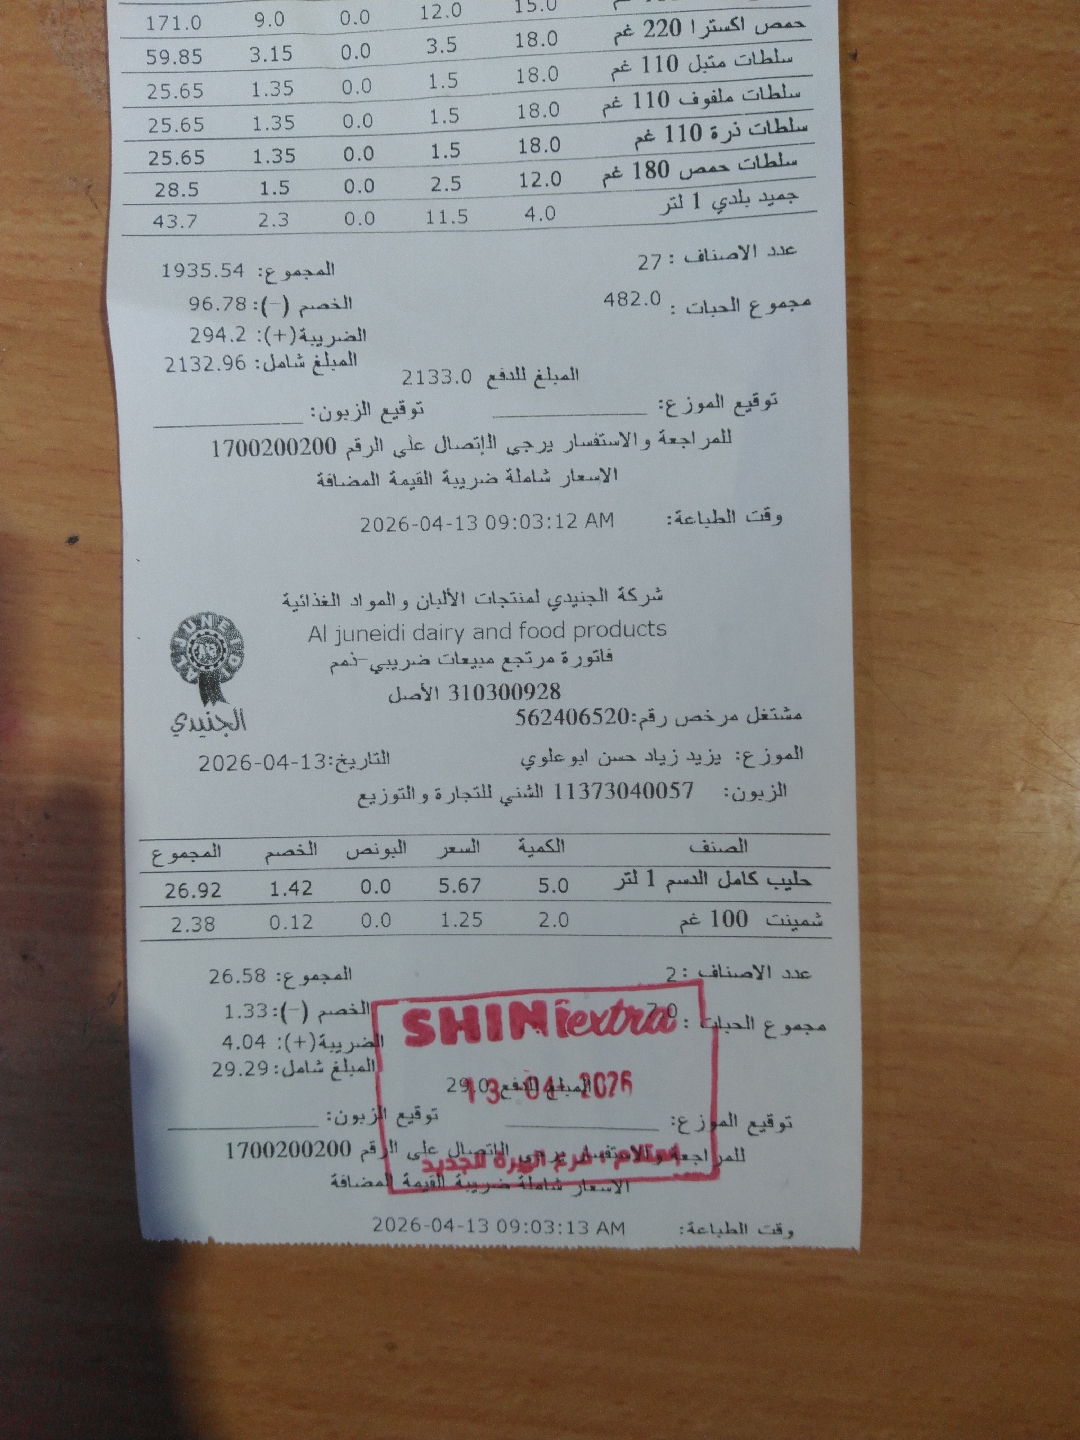 15.0 12.0 0.0 9.0 171.0
حمص اكسترا 220 غم 18.0 3.5 0.0 3.15 59.85
سلطات متبل 110 غم 18.0 1.5 0.0 1.35 25.65
سلطات ملفوف 110 غم 18.0 1.5 0.0 1.35 25.65
سلطات ذرة 110 غم 18.0 1.5 0.0 1.35 25.65
سلطات حمص 180 غم 12.0 2.5 0.0 1.5 28.5
جميد بلدي 1 لتر 4.0 11.5 0.0 2.3 43.7
عدد الاصناف : 27 المجموع: 1935.54
مجموع الحبات : 482.0 الخصم (-): 96.78
الضريبة(+): 294.2
المبلغ شامل: 2132.96
المبلغ للدفع 2133.0
توقيع الموزع: توقيع الزبون:
للمراجعة والاستفسار يرجي الإتصال على الرقم 1700200200
الاسعار شاملة ضريبة القيمة المضافة
وقت الطباعة: 2026-04-13 09:03:12 AM
شركة الجنيدي لمنتجات الألبان والمواد الغذائية
Al juneidi dairy and food products
AL JUNEIDI
الجنيدي
فاتورة مرتجع مبيعات ضريبي-نمم
310300928 الأصل
مشتغل مرخص رقم:562406520
الموزع: يزيد زياد حسن ابوعلوي التاريخ:2026-04-13
الزبون: 11373040057 الشني للتجارة والتوزيع
الصنف الكمية السعر البونص الخصم المجموع
حليب كامل الدسم 1 لتر 5.0 5.67 0.0 1.42 26.92
شمينت 100 غم 2.0 1.25 0.0 0.12 2.38
عدد الاصناف : 2 المجموع: 26.58
مجموع الحبات : 7.0 الخصم (-): 1.33
الضريبة(+): 4.04
المبلغ شامل: 29.29
المبلغ للدفع 29.0
توقيع الموزع: توقيع الزبون:
للمراجعة والاستفسار يرجي الإتصال على الرقم 1700200200
الاسعار شاملة ضريبة القيمة المضافة
وقت الطباعة: 2026-04-13 09:03:13 AM
SHINI extra
13-04-2026
فرع البيرة الجديد